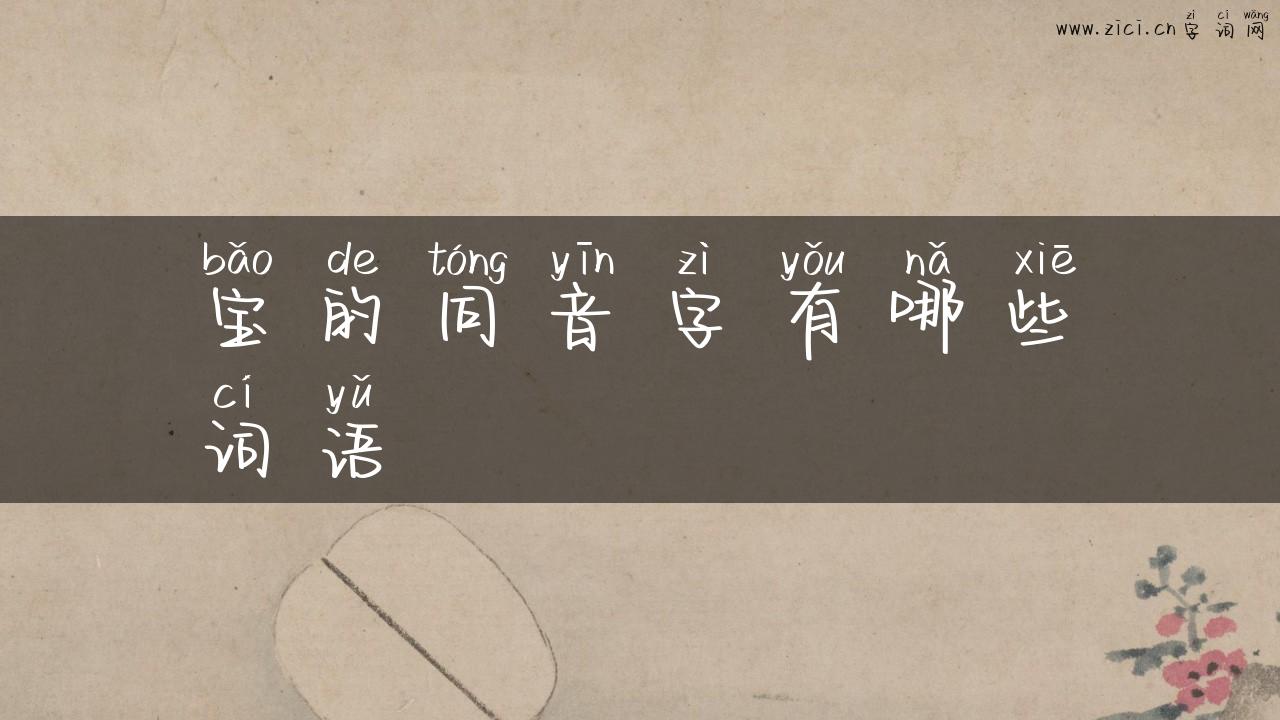 zì cí wǎng
www.zici.cn 字词网
bǎo de tóng yīn zì yǒu nǎ xiē
宝的同音字有哪些
cí yǔ
词语